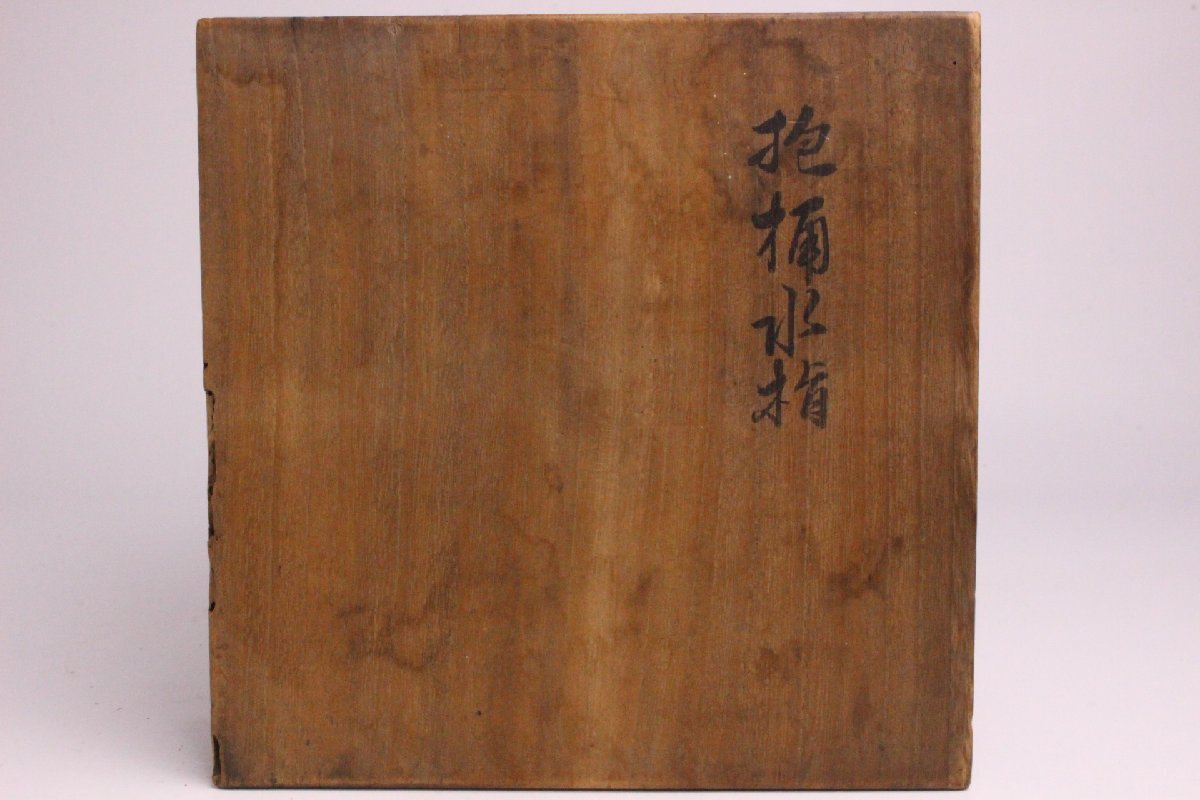 抱桶水指